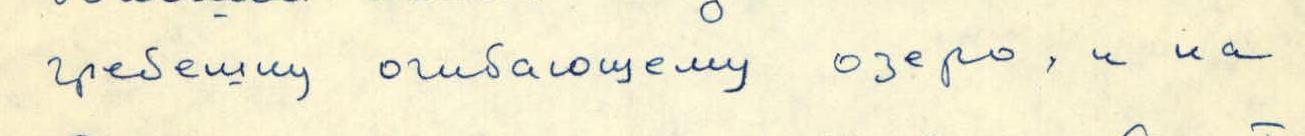 гребешку огибающему озеро, и на